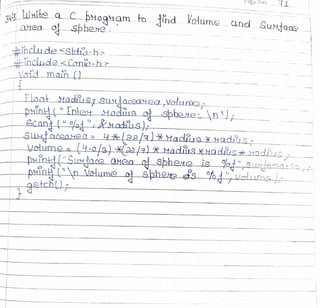 Write a C program to find Volume and Surface
area of sphere.
#include<Stdio.h>
#include<Conio.h>
Void main()
{
Float radius, surfacearea, volume;
printf("Enter radius of sphere: \n");
Scanf("%f", &radius);
Surfacearea = 4*(22/7)*radius*radius;
Volume = (4.0/3)*(22/7)*radius*radius*radius;
printf("Surface area of sphere is %f", surfacearea
printf("\n Volume of sphere is %f", volume);
getch();
}